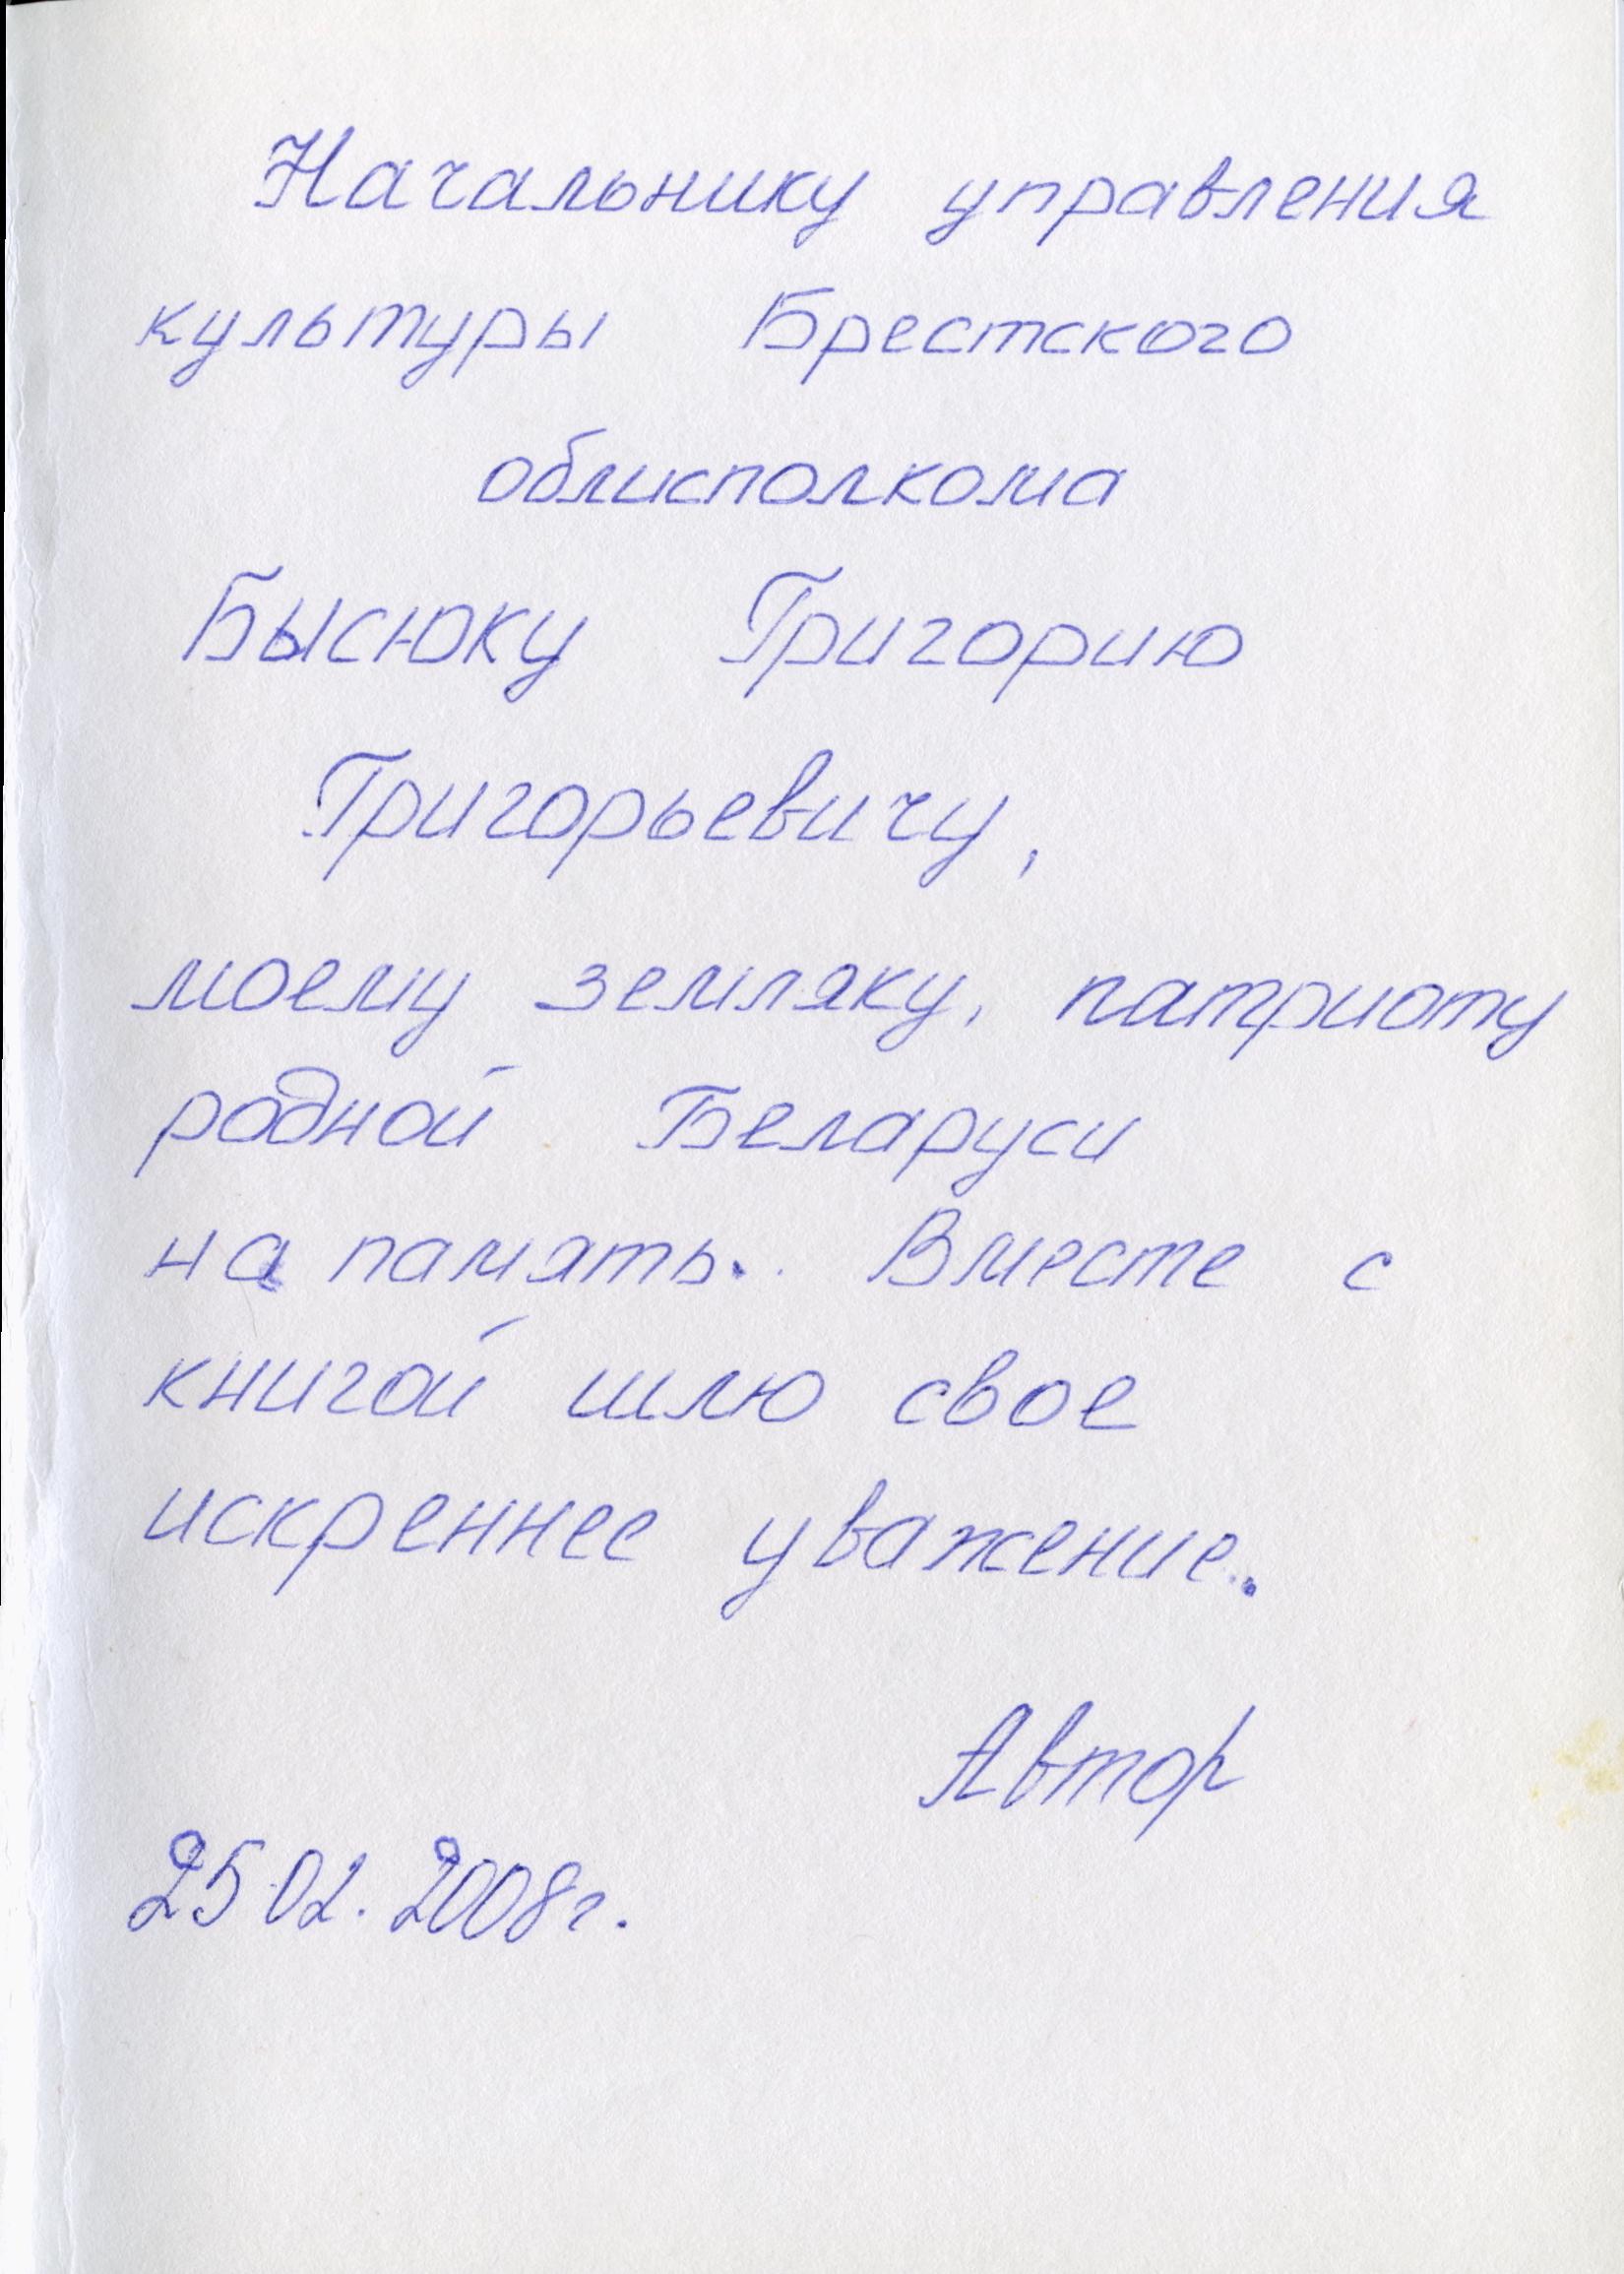 Начальнику управления
культуры Брестского
облисполкома
Бысюку Григорию
Григорьевичу,
моему земляку, патриоту
родной Беларуси
на память. Вместе с
книгой шлю свое
искреннее уважение.
Автор
25.02.2008г.